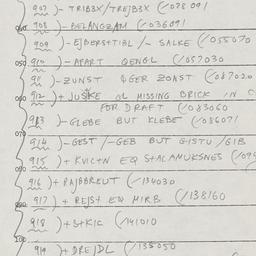 907 )- TRIB3X/TREJB3X (/028091
908 )- BELANGZAM (/036091
040
909 )- EJBERS+TIBL /- SALKE (/055070
050
910 )- APART QENGL (/057030
911 )- ZUNST 4GER ZOAST (/087020
060
912 )+ JUSKE al MISSING BRICK IN
FOR DRAFT (/083060
913 )- GLEBE BUT KLEBE (/086071
070
914 )- GEST /-GEB BUT GISTU /GIB
915 )+ KVICTN EQ S+ALAMUKSNES (/094
080
916 )+ PAJBBREUT (/134030
917 )+ REJST EQ MIRB (/138160
090
918 )+ S+KIC (/141010
100
919 )+ DREJDL (/135050